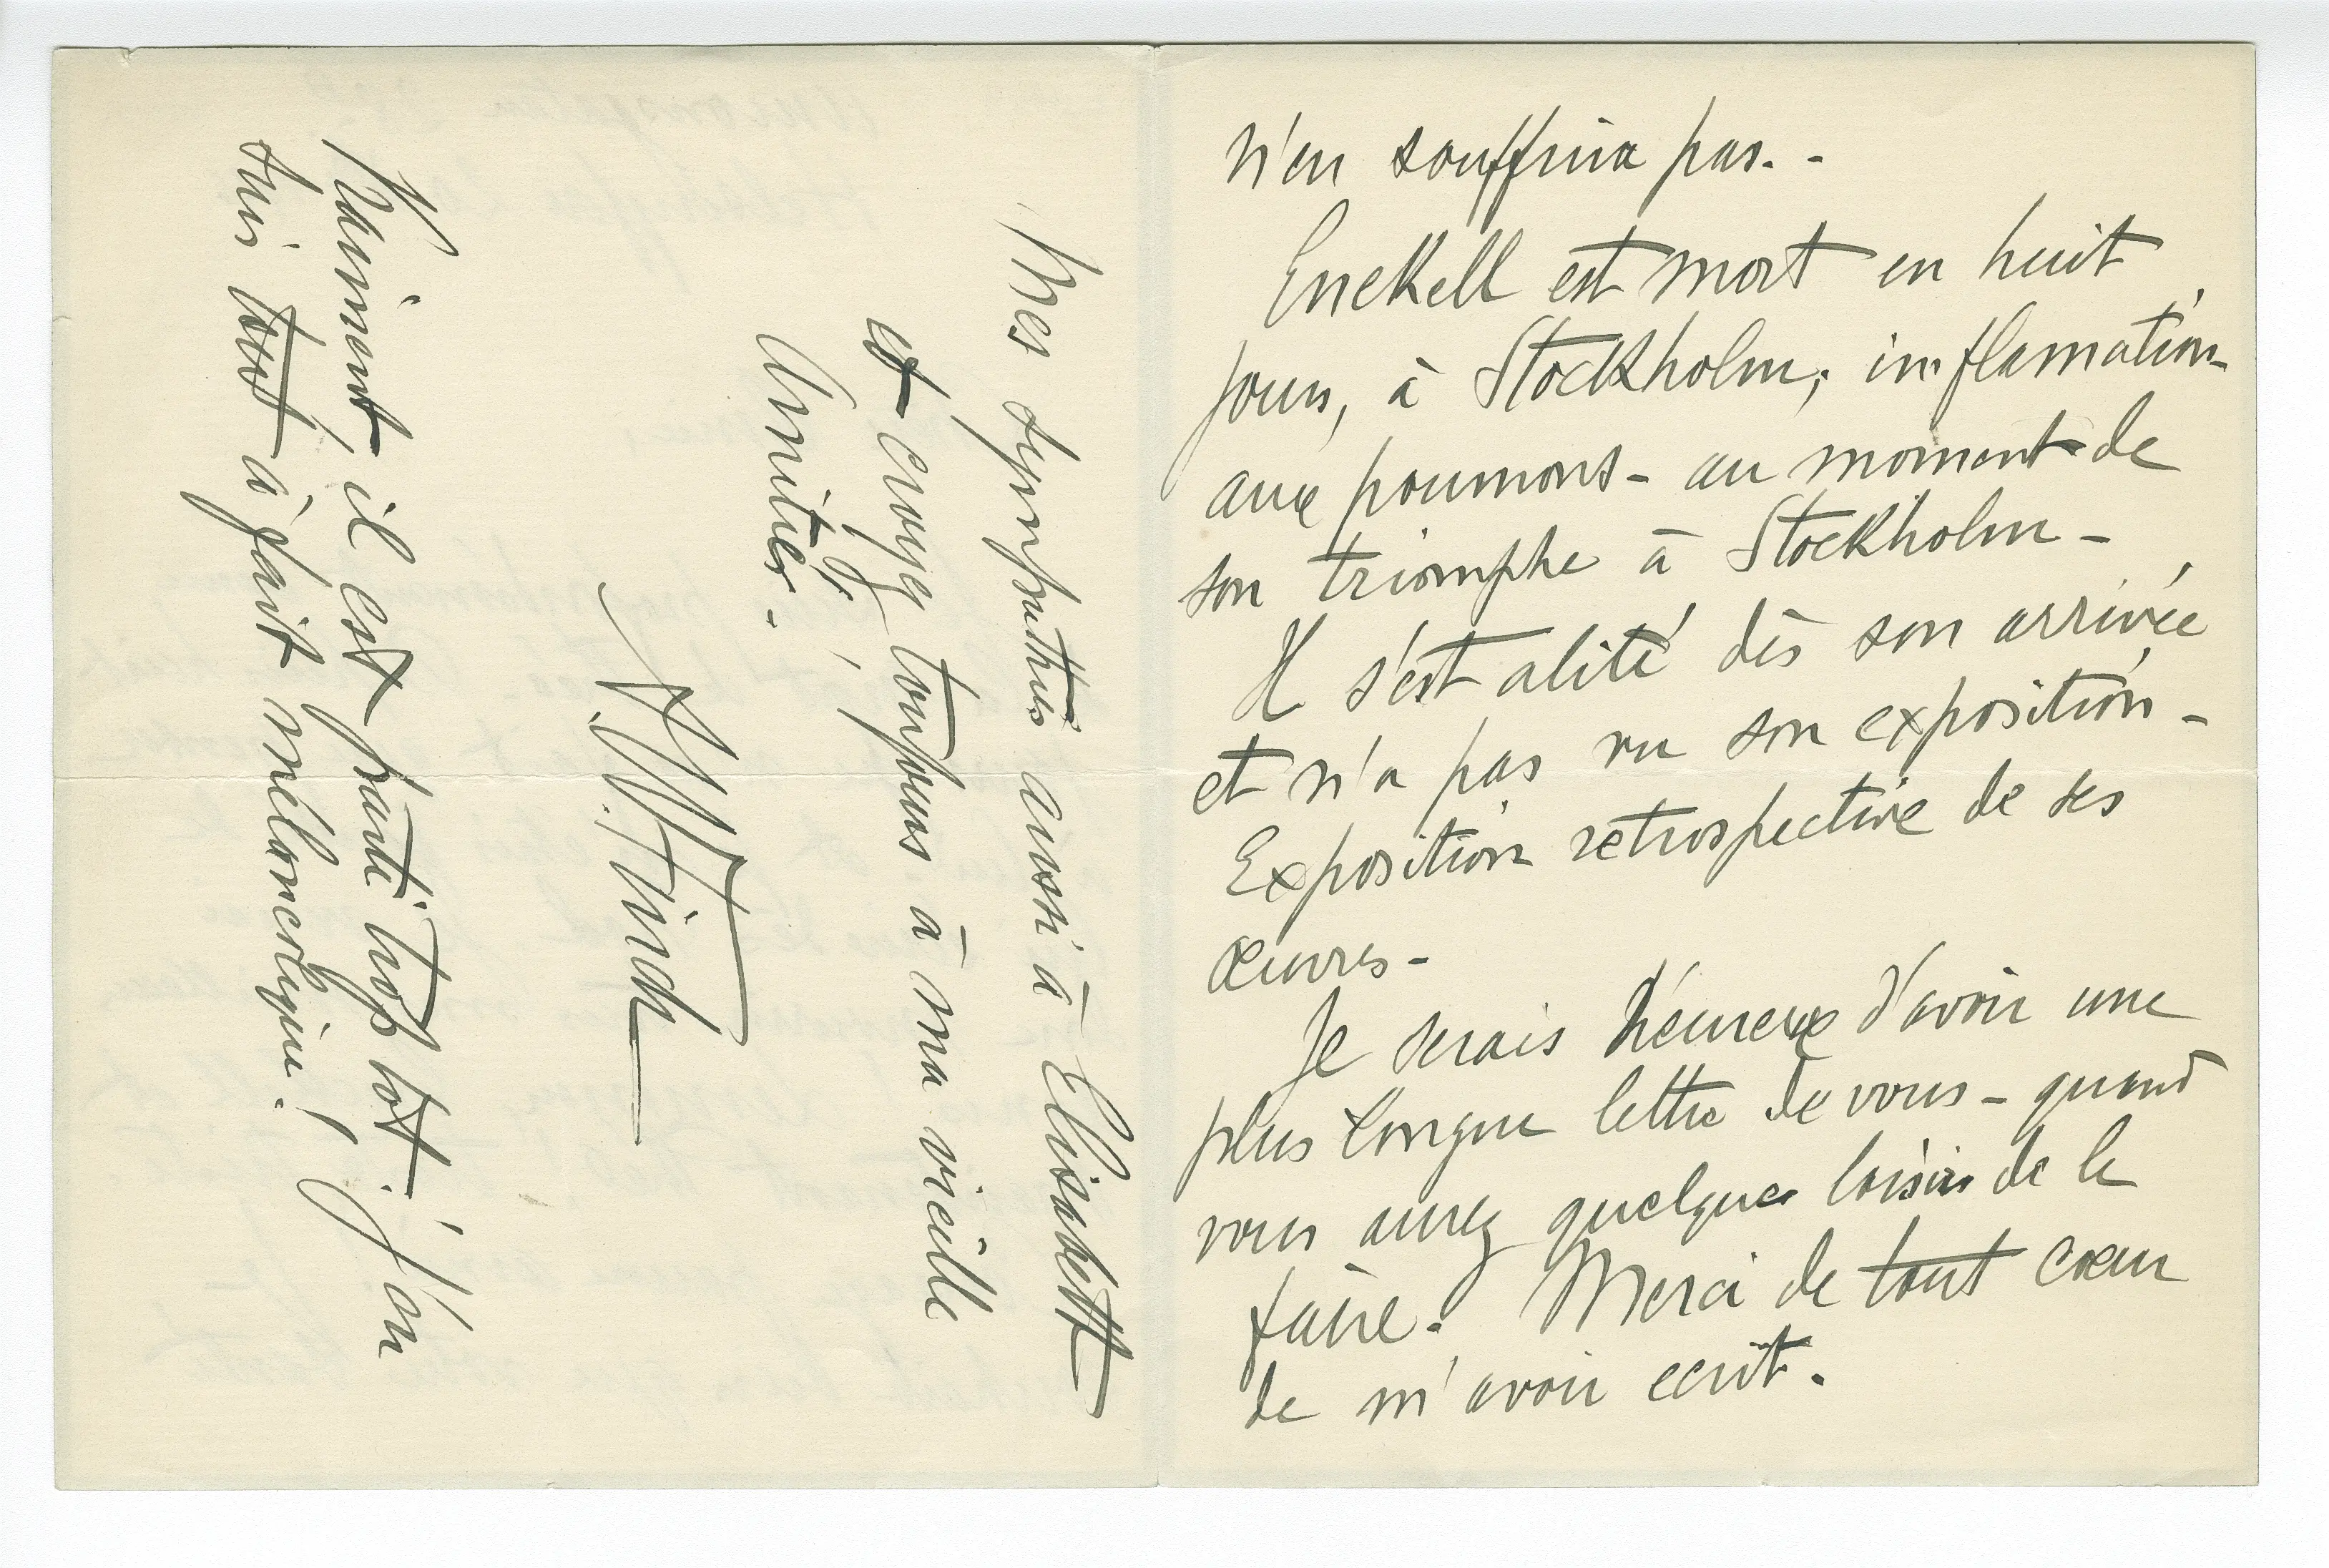 n'en souffrira pas. -
Enckell est mort en huit
jours, à Stockholm; inflamation
aux poumons - au moment de
son triomphe à Stockholm -
Il s'est alité dès son arrivée
et n'a pas vu son exposition -
Exposition retrospective de ses
œuvres -
Je serais heureux d'avoir une
plus longue lettre de vous - quand
vous aurez quelques loisirs de le
faire. Merci de tout cœur
de m'avoir ecrit.
Mes sympathies aussi à Elisabett
et croyez, toujours à ma vieille
Amitié. -
A.W. Finch
Vraiment, il est parti trop tôt. J'en
suis tout à fait mélancolique!